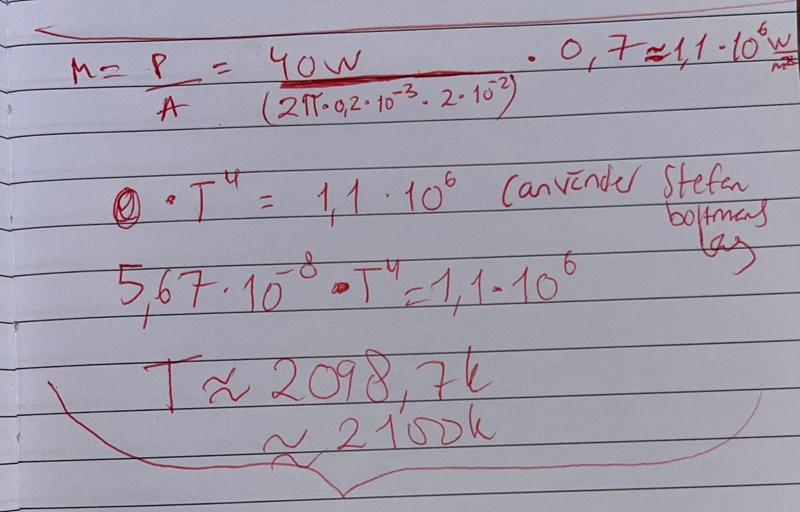 M = P/A = 40W/(2π·0,2·10⁻³·2·10⁻²) · 0,7 ≈ 1,1·10⁶ W/m²
σ · T⁴ = 1,1·10⁶ (använder Stefan
boltmans
lag
5,67·10⁻⁸ · T⁴ = 1,1·10⁶
T ≈ 2098,7k
≈ 2100k